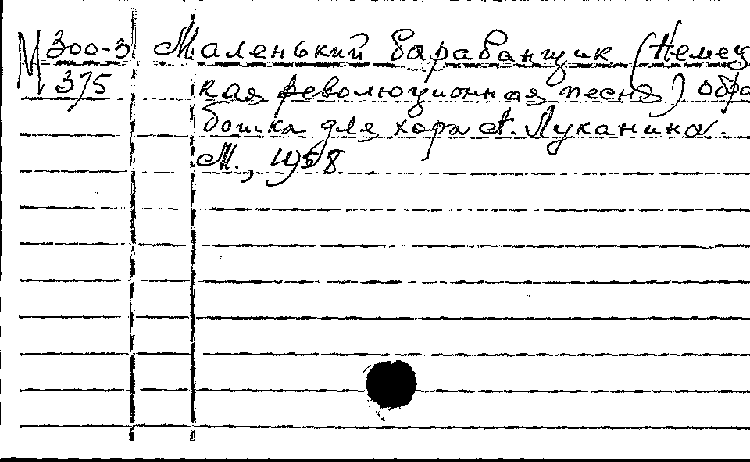 М 300-3 Маленький барабанщик (Немец
375 кая революционная песня) обра
ботка для хора А. Луканина.
М., 1958